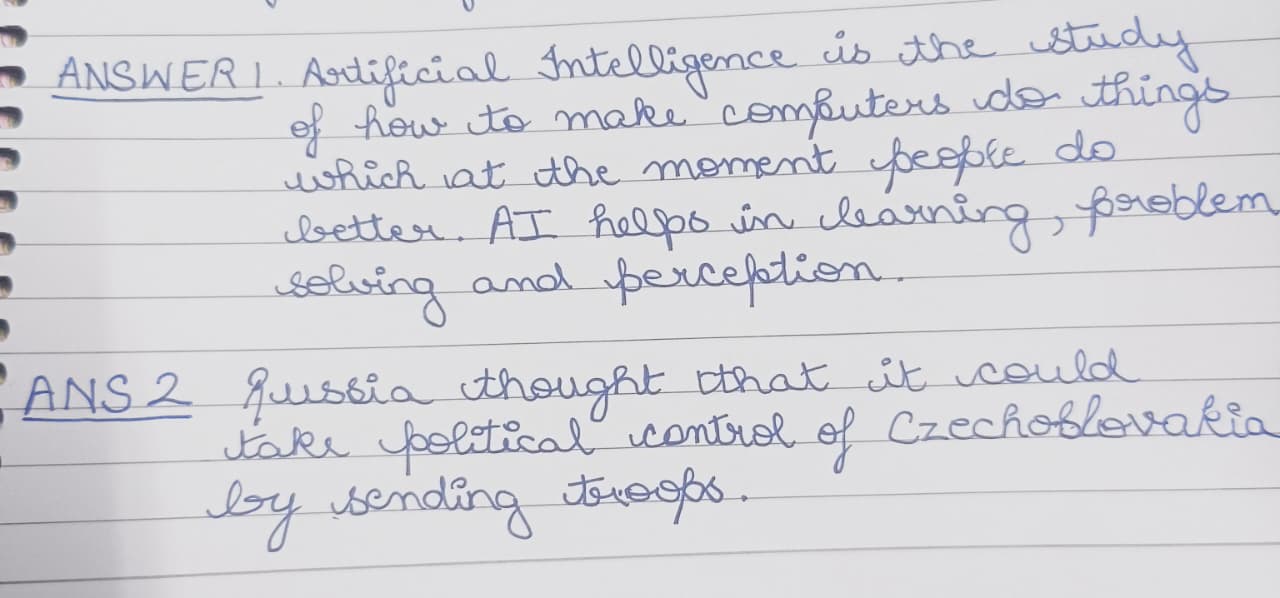 ANSWER 1. Artificial Intelligence is the study
of how to make computers do things
which at the moment people do
better. AI helps in learning, problem
solving and perception.
ANS 2 Russia thought that it could
take political control of Czechoslovakia
by sending troops.